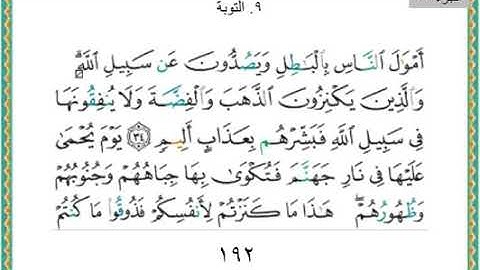 ٩. التوبة
أَمْوَٰلَ ٱلنَّاسِ بِٱلْبَٰطِلِ وَيَصُدُّونَ عَن سَبِيلِ ٱللَّهِۗ
وَٱلَّذِينَ يَكْنِزُونَ ٱلذَّهَبَ وَٱلْفِضَّةَ وَلَا يُنفِقُونَهَا
فِى سَبِيلِ ٱللَّهِ فَبَشِّرْهُم بِعَذَابٍ أَلِيمٍ ٣٤ يَوْمَ يُحْمَىٰ
عَلَيْهَا فِى نَارِ جَهَنَّمَ فَتُكْوَىٰ بِهَا جِبَاهُهُمْ وَجُنُوبُهُمْ
وَظُهُورُهُمْۖ هَٰذَا مَا كَنَزْتُمْ لِأَنفُسِكُمْ فَذُوقُوا۟ مَا كُنتُمْ
١٩٢